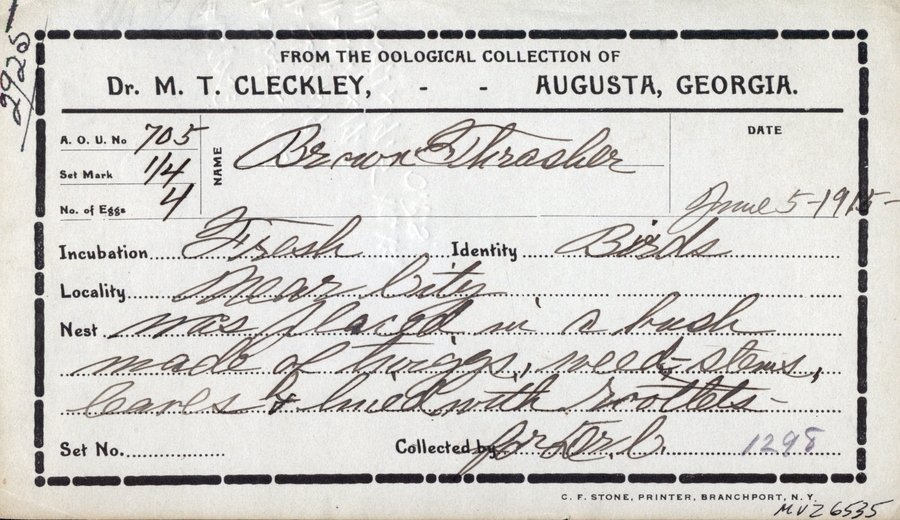 2925
FROM THE OOLOGICAL COLLECTION OF
Dr. M. T. CLECKLEY, - - AUGUSTA, GEORGIA.
A. O. U. No 705
Set Mark 1/4
No. of Eggs 4
NAME Brown Thrasher
DATE
June 5-1915-
Incubation Fresh Identity Birds
Locality Near City
Nest was placed in a bush
made of twigs, weed-stems,
leaves & lined with rootlets-
Set No. Collected by for Dr. C. 1298
C. F. STONE, PRINTER, BRANCHPORT, N. Y.
MVZ 6535